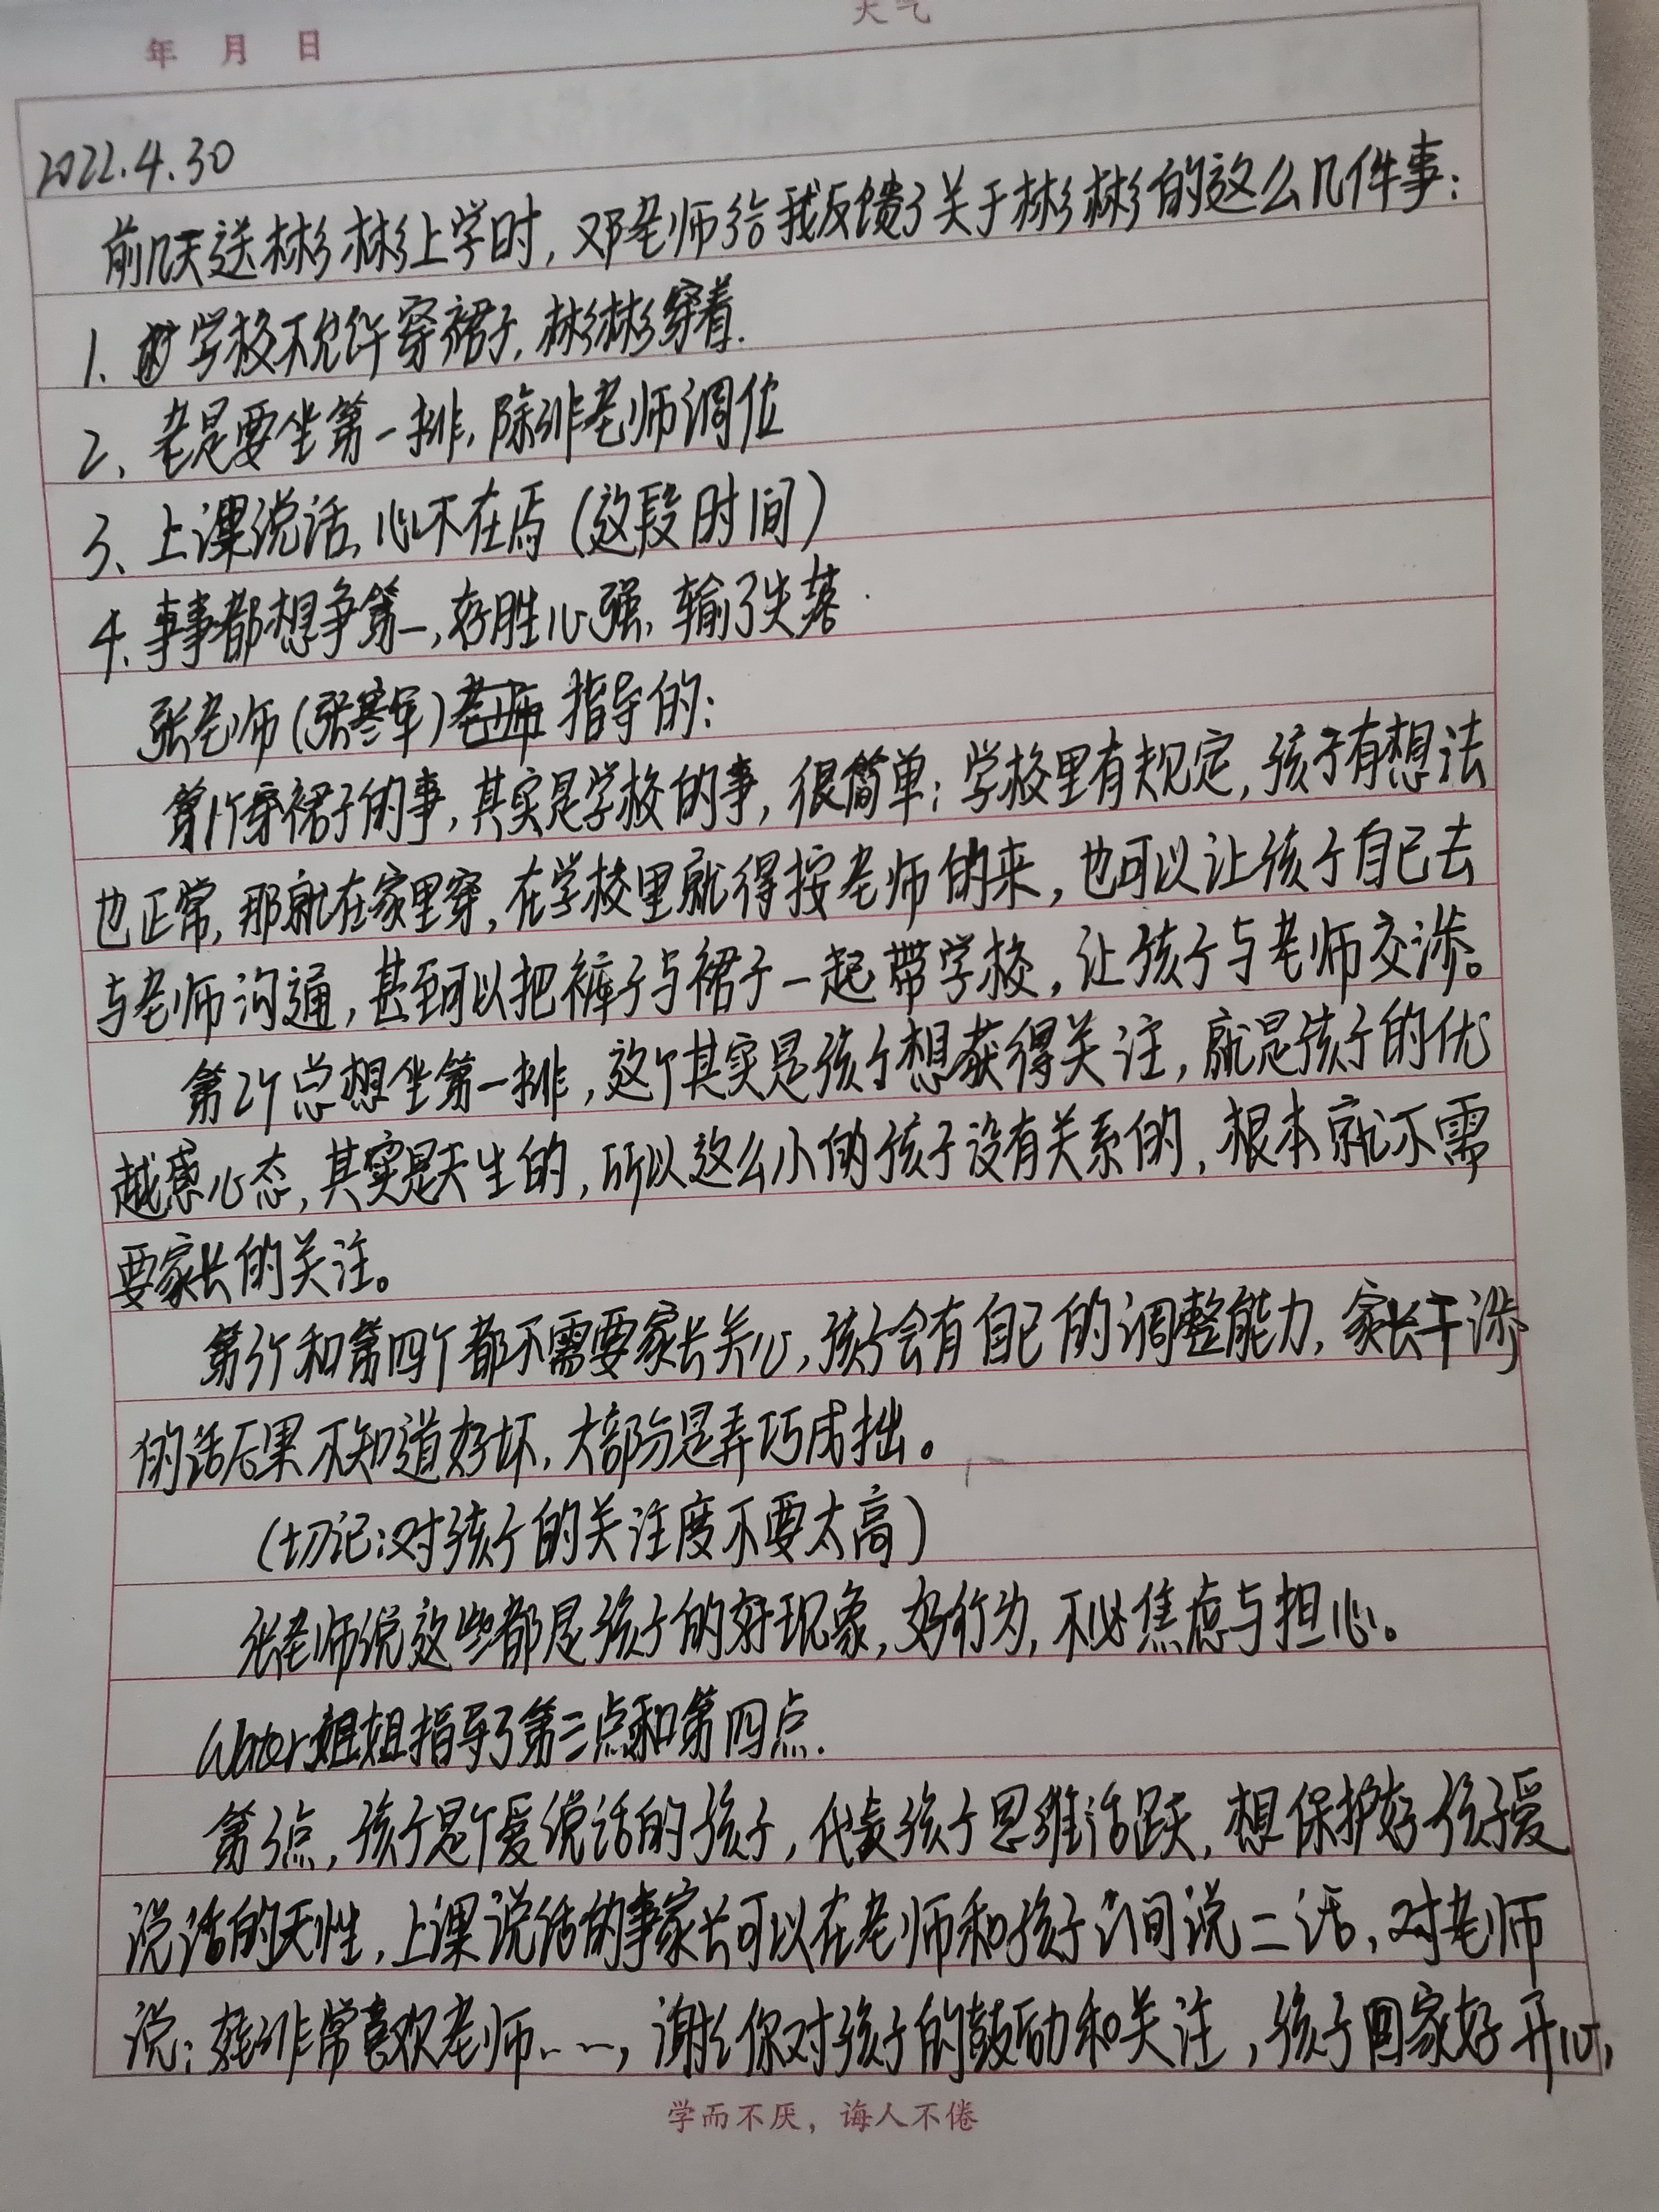 天气
年 月 日
2022.4.30
前几天送彬彬上学时,邓老师给我反馈了关于彬彬的这么几件事:
1、学校不允许穿裙子,彬彬穿着.
2、老是要坐第一排,除非老师调位
3、上课说话,心不在焉(这段时间)
4.事事都想争第一,好胜心强,输了失落.
张老师(张寒军)老师 指导的:
第1个穿裙子的事,其实是学校的事,很简单:学校里有规定,孩子有想法
也正常,那就在家里穿,在学校里就得按老师的来,也可以让孩子自己去
与老师沟通,甚至可以把裤子与裙子一起带学校,让孩子与老师交涉。
第2个总想坐第一排,这个其实是孩子想获得关注,就是孩子的优
越感心态,其实是天生的,所以这么小的孩子没有关系的,根本就不需
要家长的关注。
第3个和第四个都不需要家长关心,孩子会有自己的调整能力,家长干涉
的话后果不知道好坏,大部分是弄巧成拙。
(切记:对孩子的关注度不要太高)
张老师说这些都是孩子的好现象,好行为,不必焦虑与担心。
Water姐姐指导了第三点和第四点.
第3点,孩子是个爱说话的孩子,代表孩子思维活跃,想保护好孩子爱
说话的天性,上课说话的事家长可以在老师和孩子之间说二话,对老师
说:孩非常喜欢老师……,谢谢你对孩子的鼓励和关注,孩子回家好开心,
学而不厌,诲人不倦